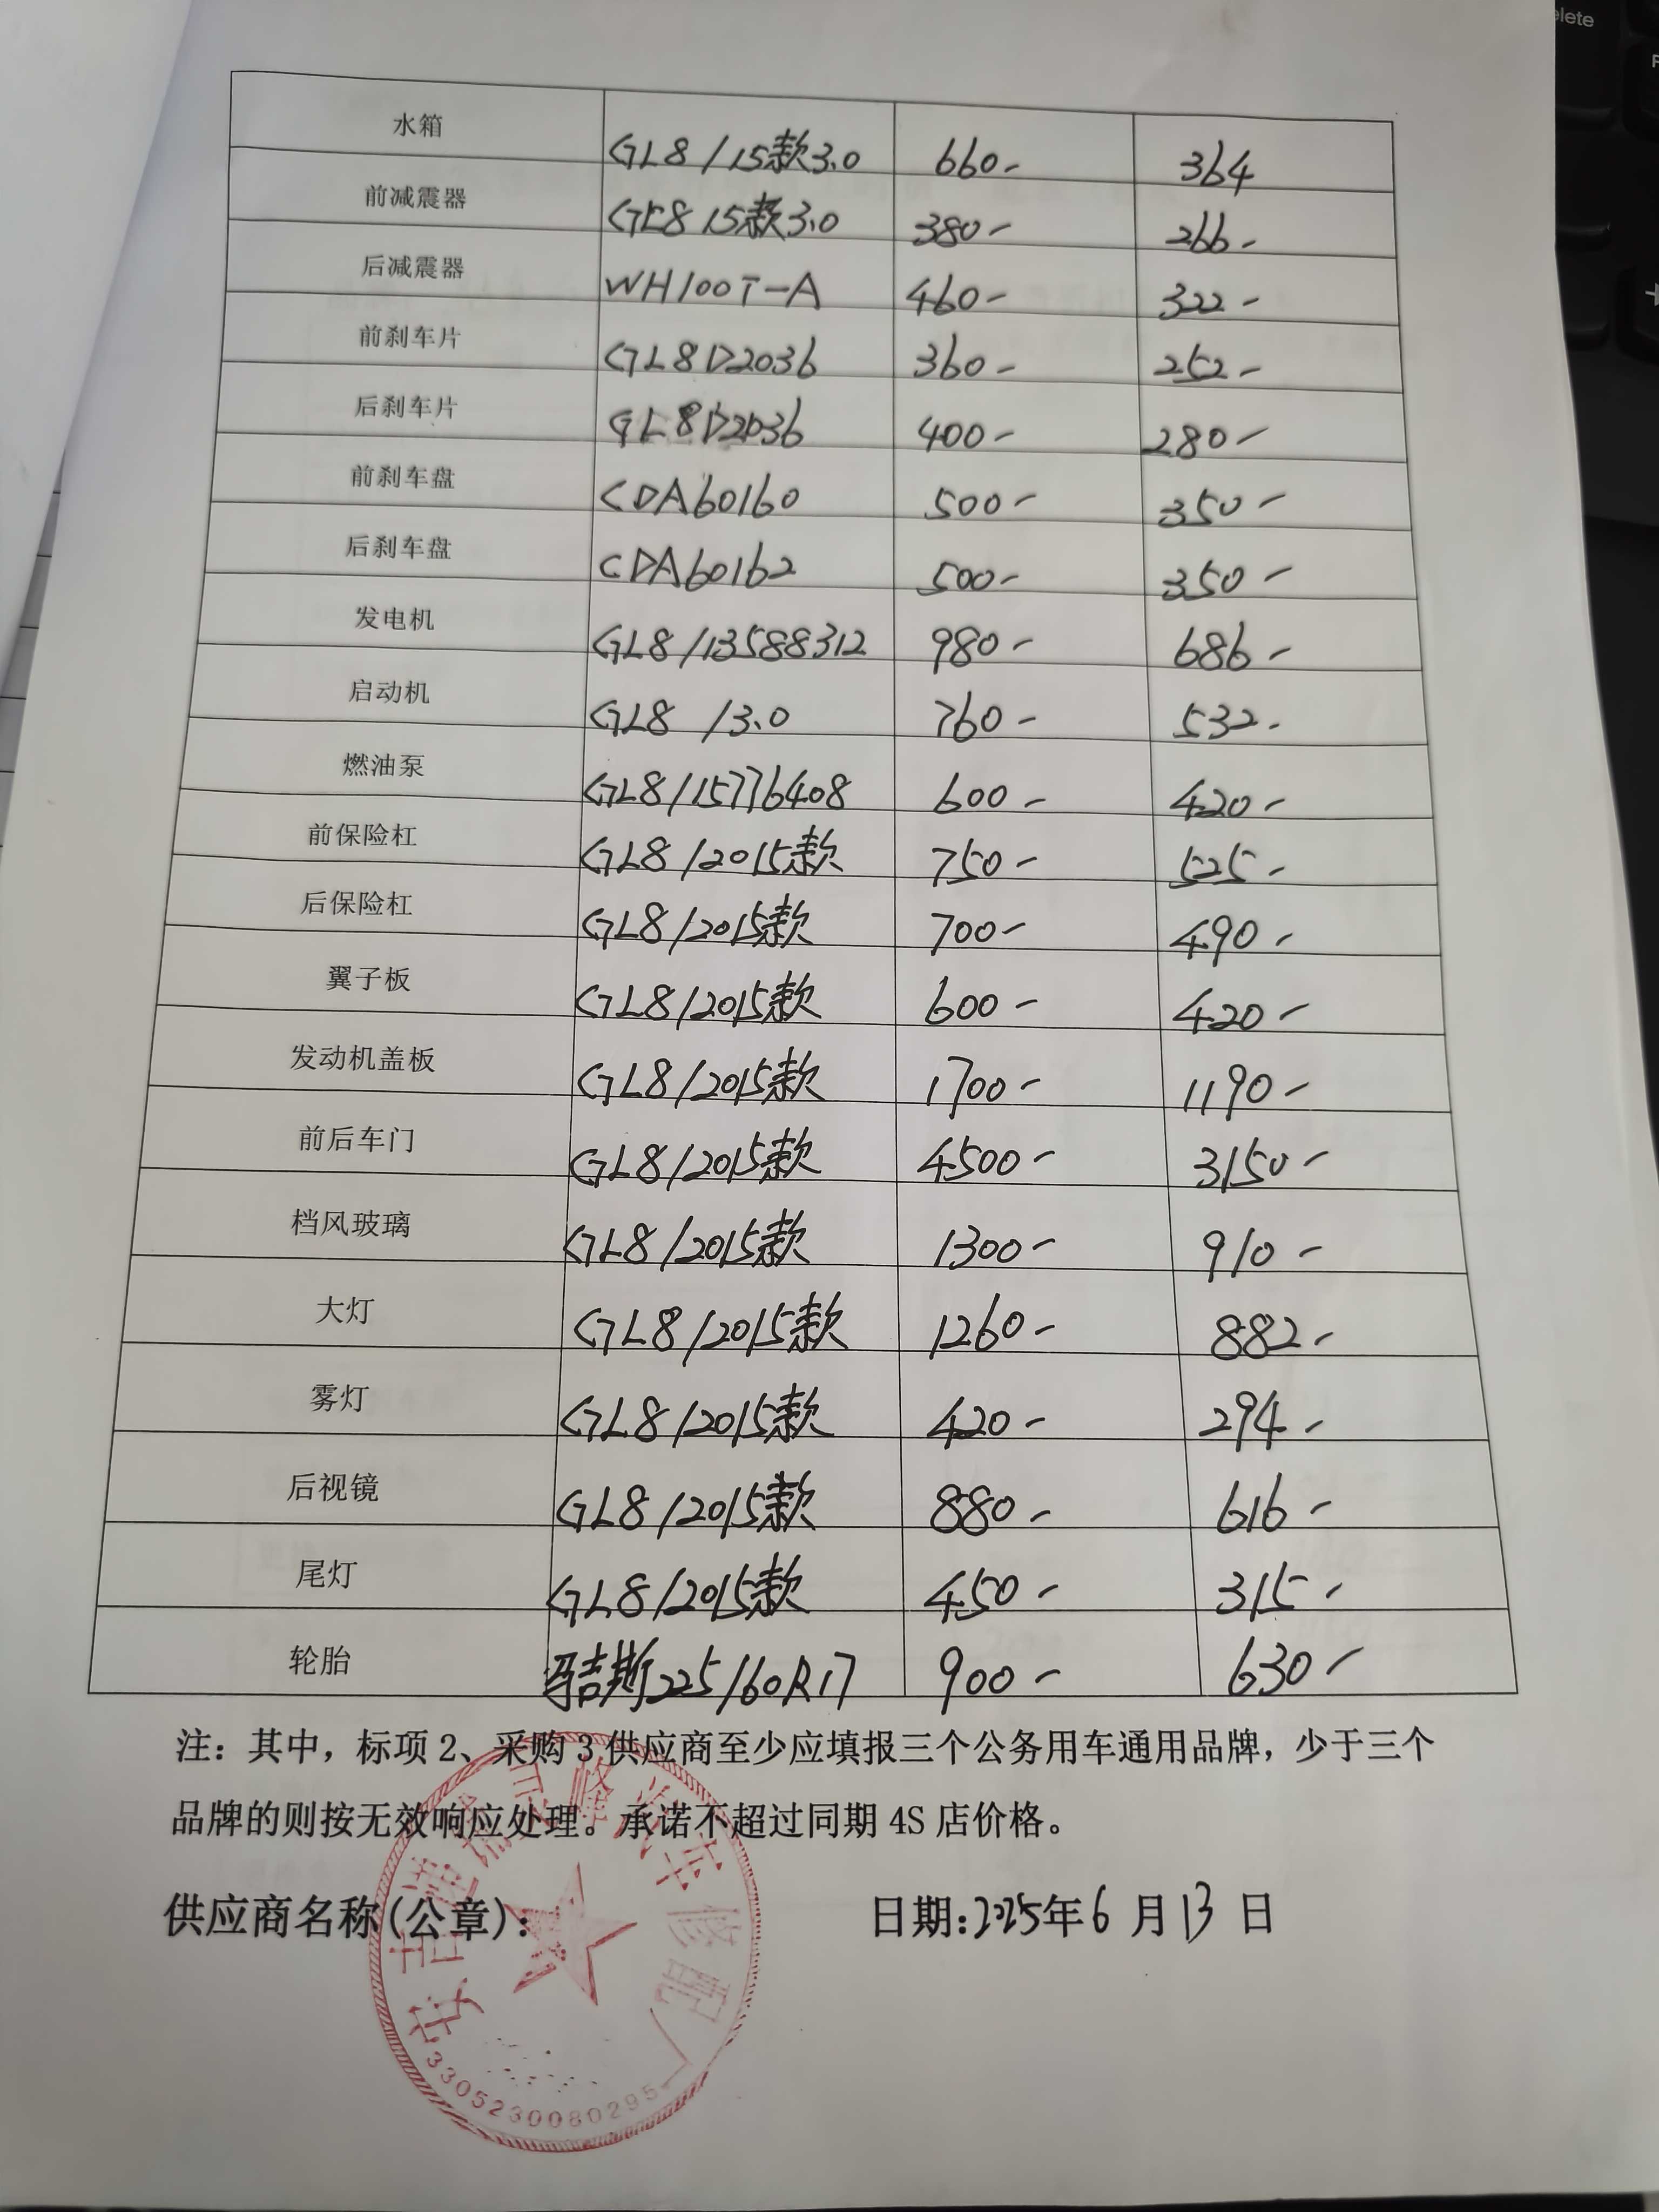 elete
水箱 GL8/15款3.0 660- 364
前减震器 GL8 15款3.0 380- 266-
后减震器 WH100T-A 460- 322-
前刹车片 GL8D2036 360- 252-
后刹车片 GL8D2036 400- 280-
前刹车盘 CDA60160 500- 350-
后刹车盘 CDA60162 500- 350-
发电机 GL8/13588312 980- 686-
启动机 GL8 /3.0 760- 532-
燃油泵 GL8/15776408 600- 420-
前保险杠 GL8/2015款 750- 525-
后保险杠 GL8/2015款 700- 490-
翼子板 GL8/2015款 600- 420-
发动机盖板 GL8/2015款 1700- 1190-
前后车门 GL8/2015款 4500- 3150-
档风玻璃 GL8/2015款 1300- 910-
大灯 GL8/2015款 1260- 882-
雾灯 GL8/2015款 420- 294-
后视镜 GL8/2015款 880- 616-
尾灯 GL8/2015款 450- 315-
轮胎 225/60R17 900- 630-
注：其中，标项2、采购3供应商至少应填报三个公务用车通用品牌，少于三个
品牌的则按无效响应处理。承诺不超过同期4S店价格。
供应商名称(公章)： 日期:2025年6月13日
安吉递铺灵峰汽车修配厂
3305230080295